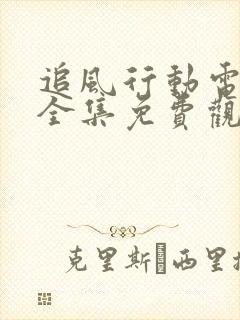 追風行動電
全集免費觀
克里斯·西里